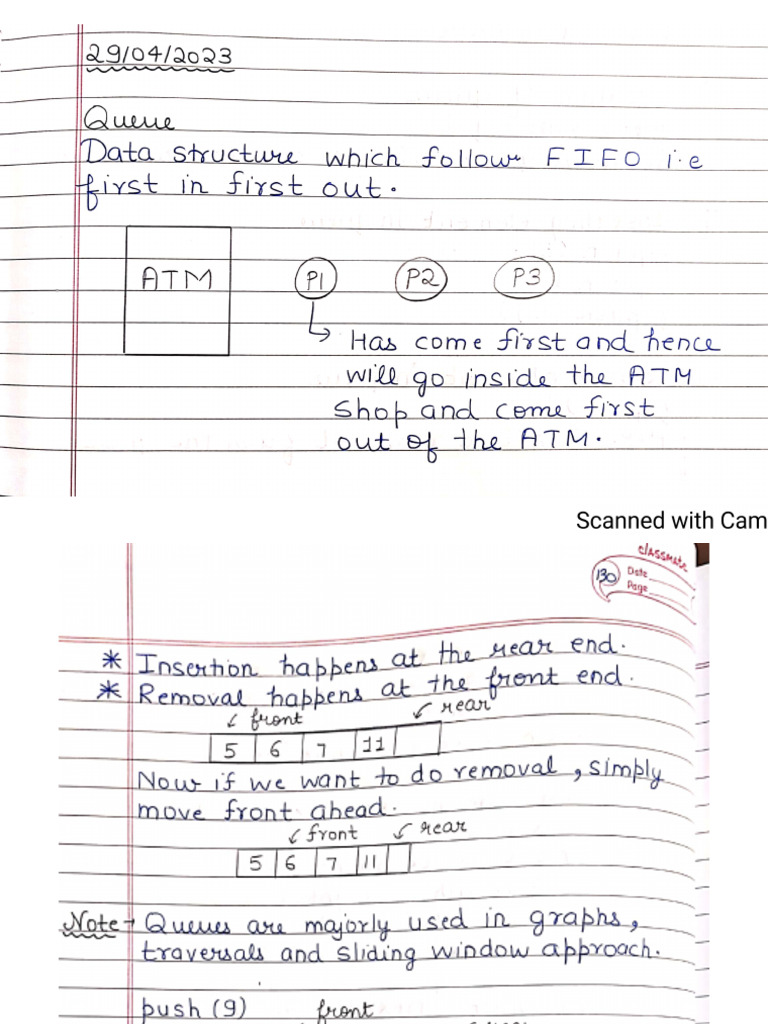 29/04/2023
Queue
Data structure which follow FIFO i.e
first in first out.
ATM P1 P2 P3
Has come first and hence
will go inside the ATM
Shop and come first
out of the ATM.
Scanned with Cam
classmate
130 Date
Page
* Insertion happens at the rear end.
* Removal happens at the front end.
front rear
5 6 7 11
Now if we want to do removal, simply
move front ahead.
front rear
5 6 7 11
Note → Queues are majorly used in graphs,
traversals and sliding window approach.
push (9) front